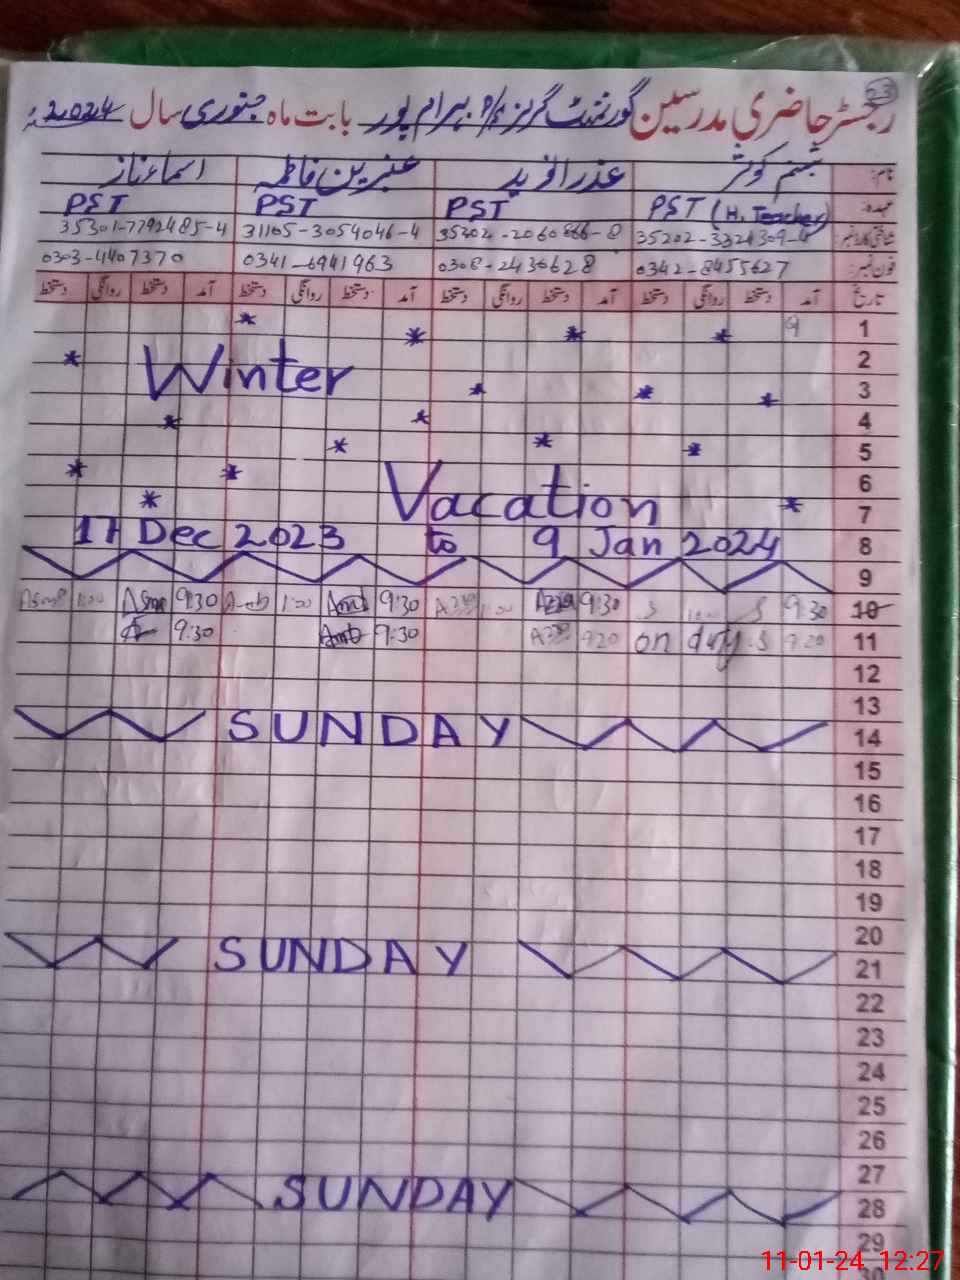 23
رجسٹر حاضری مدرسین گورنمنٹ گرلز پ/س بہرام پور بابت ماہ جنوری سال 2024ء
نام: شبنم کوثر عذرا نوید عنبرین فاطمہ اسماء ناز
عہدہ: PST (H. Teacher) PST PST PST
شناختی کارڈ نمبر: 35202-3324309-4 35202-2060866-8 31105-3054046-4 35301-7792485-4
فون نمبر: 0342-8455627 0308-2436628 0341-6941963 0303-4407370
تاریخ آمد دستخط روانگی دستخط آمد دستخط روانگی دستخط آمد دستخط روانگی دستخط آمد دستخط روانگی دستخط
1
2
Winter
3
4
5
6
Vacation
7
17 Dec 2023 to 9 Jan 2024 8
9
1:00 9:30 1:00 9:30 1:00 9:30 9:30 10
9:30 9:30 9:20 on duty 9:20 11
12
13
SUNDAY 14
15
16
17
18
19
20
SUNDAY 21
22
23
24
25
26
27
SUNDAY 28
29
30
11-01-24 12:27